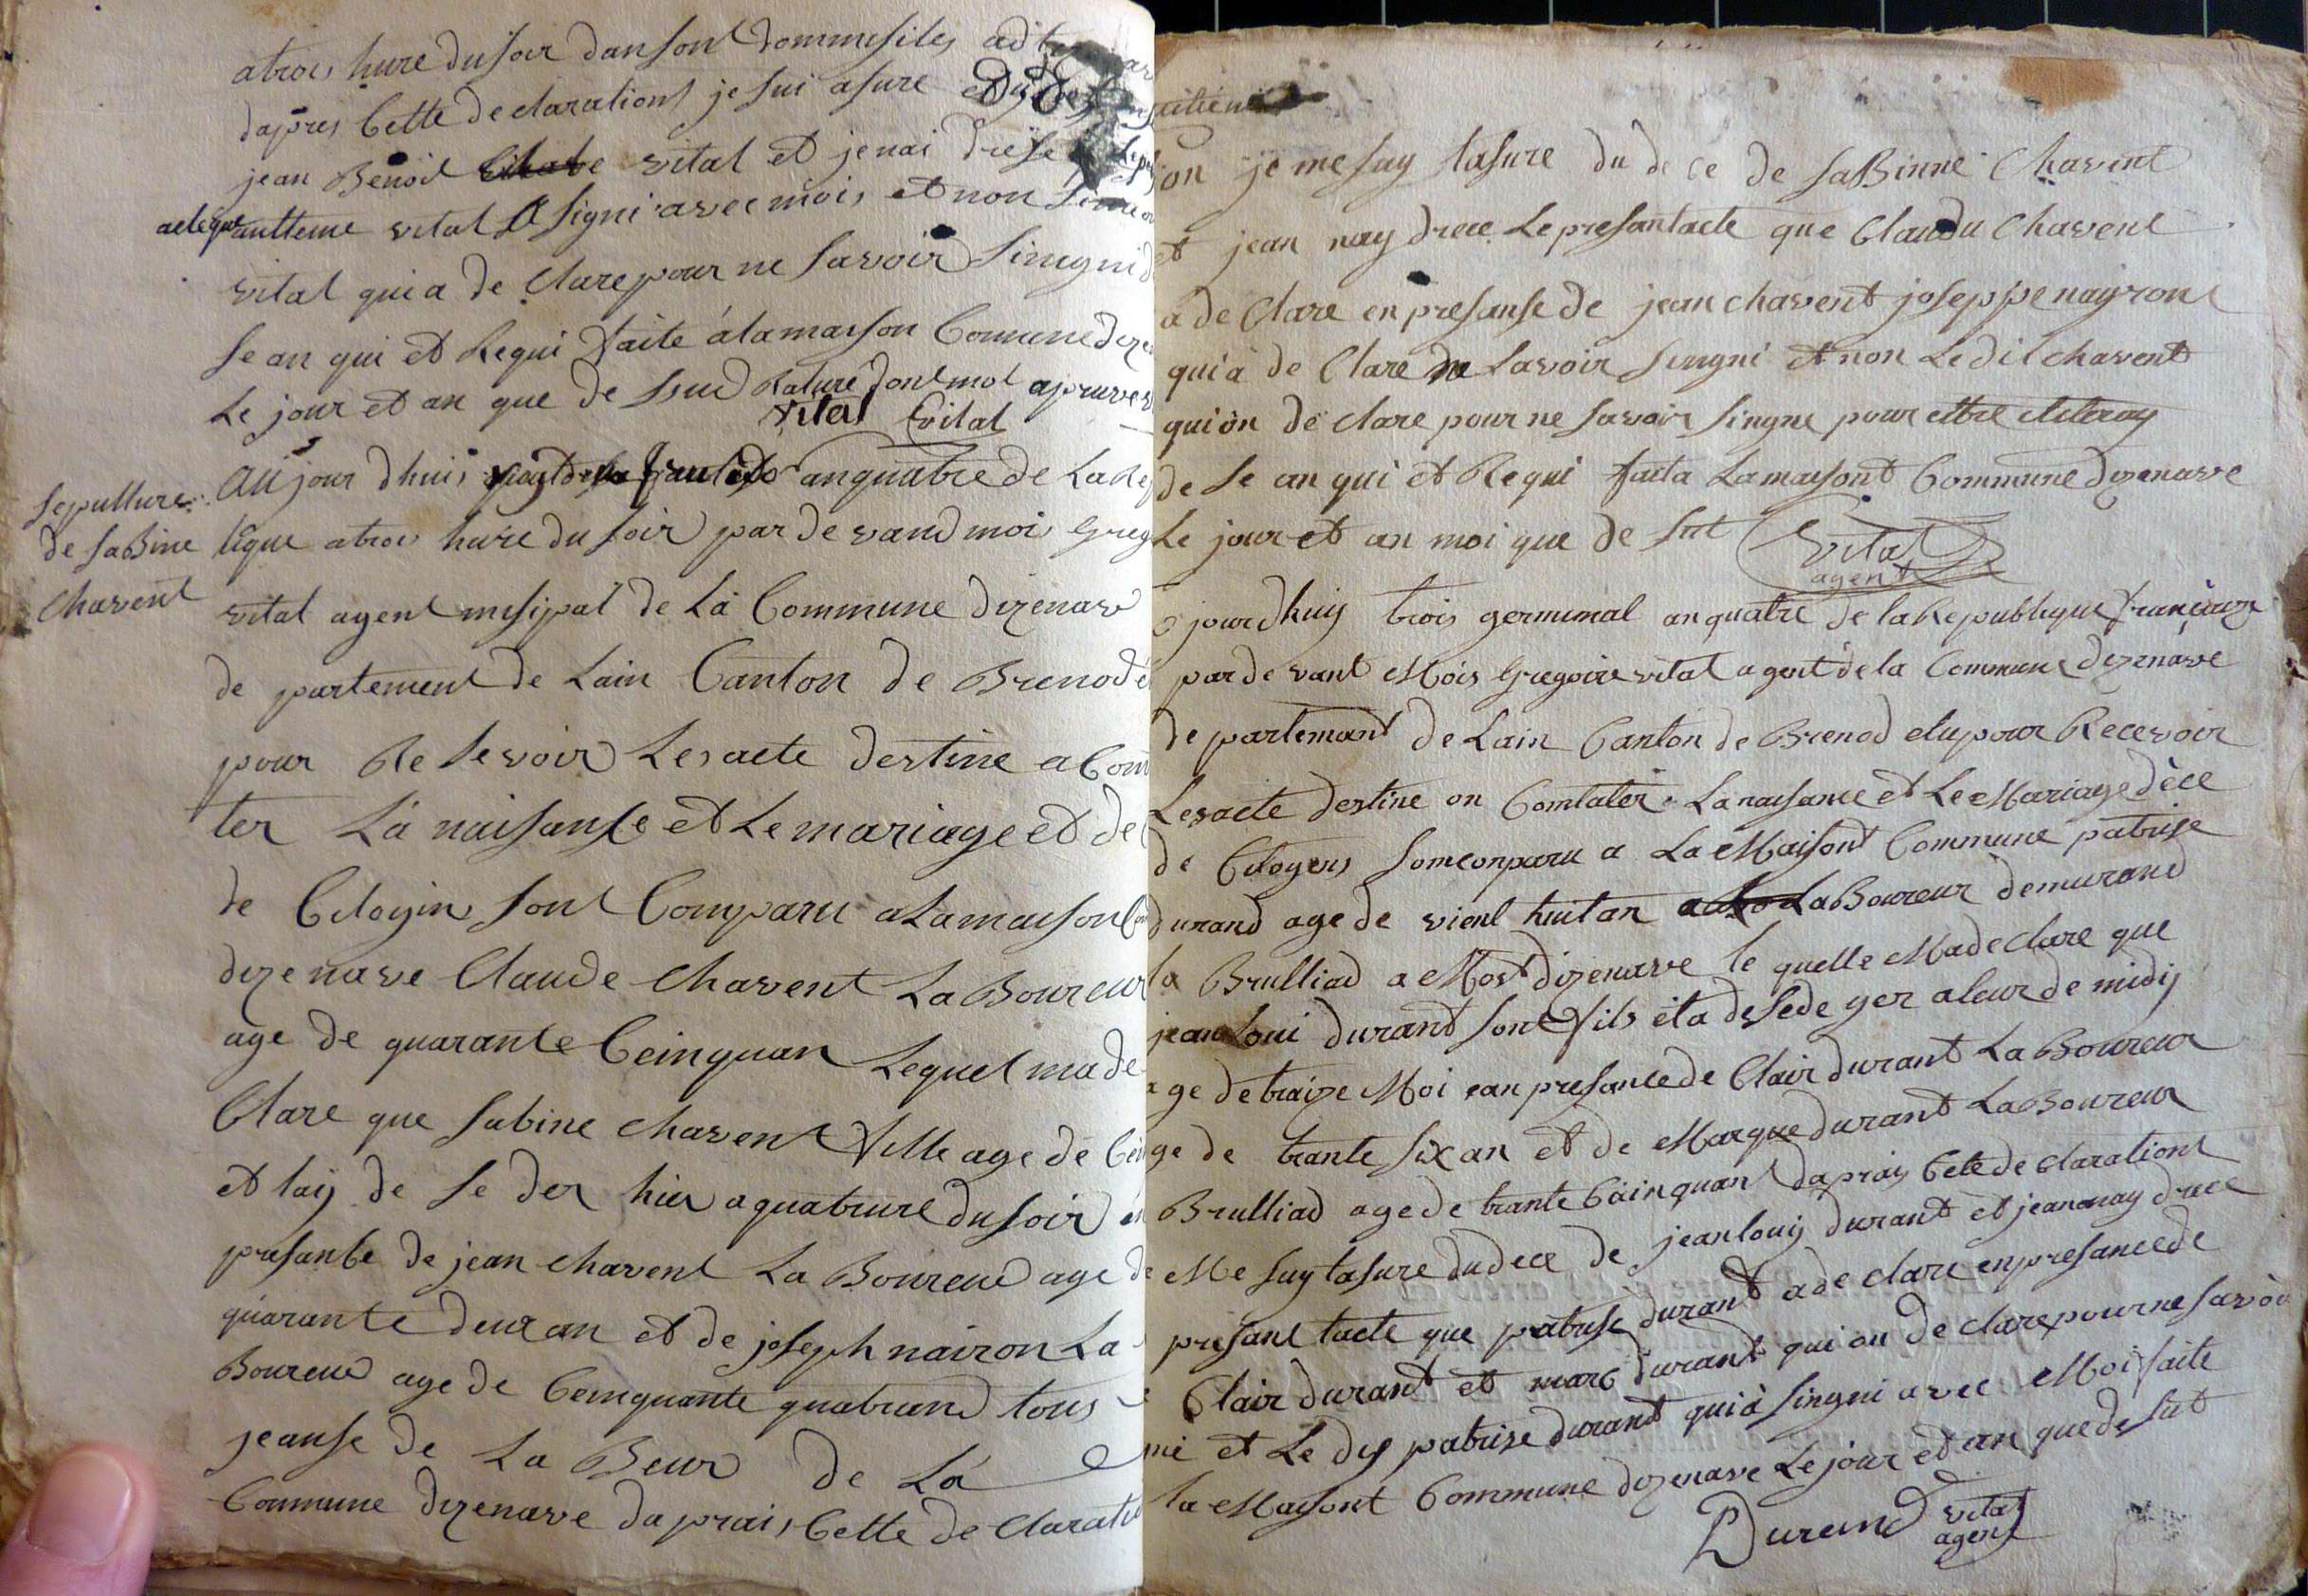 atrois hure du soir dan sont dommisiles adt
dapres Cette declarations je sui asure
jean Benoit vital et jenai drese
acte que antteme vital A signi avec mois et non
vital qui a de Clare pour ne savoir singni
se an qui et Requi faite a la maison Comune dize
Le jour et an que de sud Rature dont mot apruve
vital Cvital
sepulture
de saBine
Chavent
Au jour dhuis an quatre de La Re
lique atrois hure du soir par de vand mois Greg
vital agent misipal de La Commune dizenav
de partement de Lain Canton de Brenod
pour Re sevoir Les acte destine a Cons
ter La naisanse et Le mariage et de
de Citoyin sont Comparu a La maison
dizenave Claude Chavent La Boureur
age de quarante Ceinquan Lequel ma de
Clare que sabine Chavent fille age de
et tay de se der hier a quatrure du soir en
presante de jean chavent La Boureur age de
quarante deuxan et de joseph nairon La
Boureur age de Ceinquante quatrand tous
jeanse de La Beur de La
Commune dizenave daprais Cette de Claratio
on je me suy tasure du de ce de saBinne Chavent
et jean nay drece Le presantacte que Claudu Chavent
a de Clare en presanse de jean chavent joseppe nayront
qui a de Clare savoir singni et non Le dit chavent
qui on de clare pour ne savoir singne pour ettre
de se an qui et Requi faita La maisont Commune dizenave
Le jour et an moi que de sut Cvital
agent
jourdhuy trois germinal an quatre de la Republique françaize
par de vant Mois Gregoire vital agent de la Commune dizenave
de partemant de Lain Canton de Brenod elu pour Recevoir
Les acte destine on Comtater La naisance et Le Mariage dèce
de Citoyens som conparu a La Maisont Commune patrise
durand age de vient huit an LaBoureur demurand
la Brulliad a Mort dizenave le quelle Ma de clare que
jean Loui durant sont fils eta desede yer a leur de midy
age de traize Moi ean presance de Clair durant La Boureur
ge de trante six an et de Marque durant LaBoureur
Brulliad age de trante Cainquant daprais Cete de clarationt
Me suy tasure du dece de jean louis durant et jean nay drece
presant tacte que patrise durant a de clare en presance de
Clair durant et marc durant qui on de clare pour ne savoir
ni et Le dy patrise durant qui a singni avec Moi faite
la Maisont Commune dizenave Le jour et an que de sut
Durand vital
agent